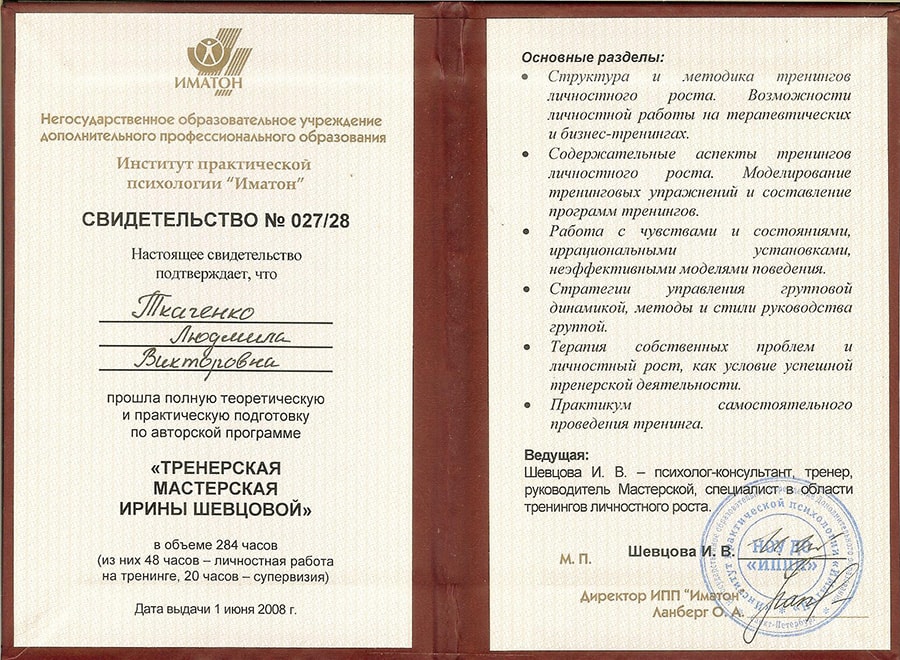 ИМАТОН
Негосударственное образовательное учреждение
дополнительного профессионального образования
Институт практической
психологии “Иматон”
СВИДЕТЕЛЬСТВО № 027/28
Настоящее свидетельство
подтверждает, что
Ткаченко
Людмила
Викторовна
прошла полную теоретическую
и практическую подготовку
по авторской программе
«ТРЕНЕРСКАЯ
МАСТЕРСКАЯ
ИРИНЫ ШЕВЦОВОЙ»
в объеме 284 часов
(из них 48 часов – личностная работа
на тренинге, 20 часов – супервизия)
Дата выдачи 1 июня 2008 г.
Основные разделы:
• Структура и методика тренингов
личностного роста. Возможности
личностной работы на терапевтических
и бизнес-тренингах.
• Содержательные аспекты тренингов
личностного роста. Моделирование
тренинговых упражнений и составление
программ тренингов.
• Работа с чувствами и состояниями,
иррациональными установками,
неэффективными моделями поведения.
• Стратегии управления групповой
динамикой, методы и стили руководства
группой.
• Терапия собственных проблем и
личностный рост, как условие успешной
тренерской деятельности.
• Практикум самостоятельного
проведения тренинга.
Ведущая:
Шевцова И. В. – психолог-консультант, тренер,
руководитель Мастерской, специалист в области
тренингов личностного роста.
Шевцова И. В.
М. П.
НОУ ДО
«ИППИ»
Институт практической психологии
Директор ИПП “Иматон”
Ланберг О. А.